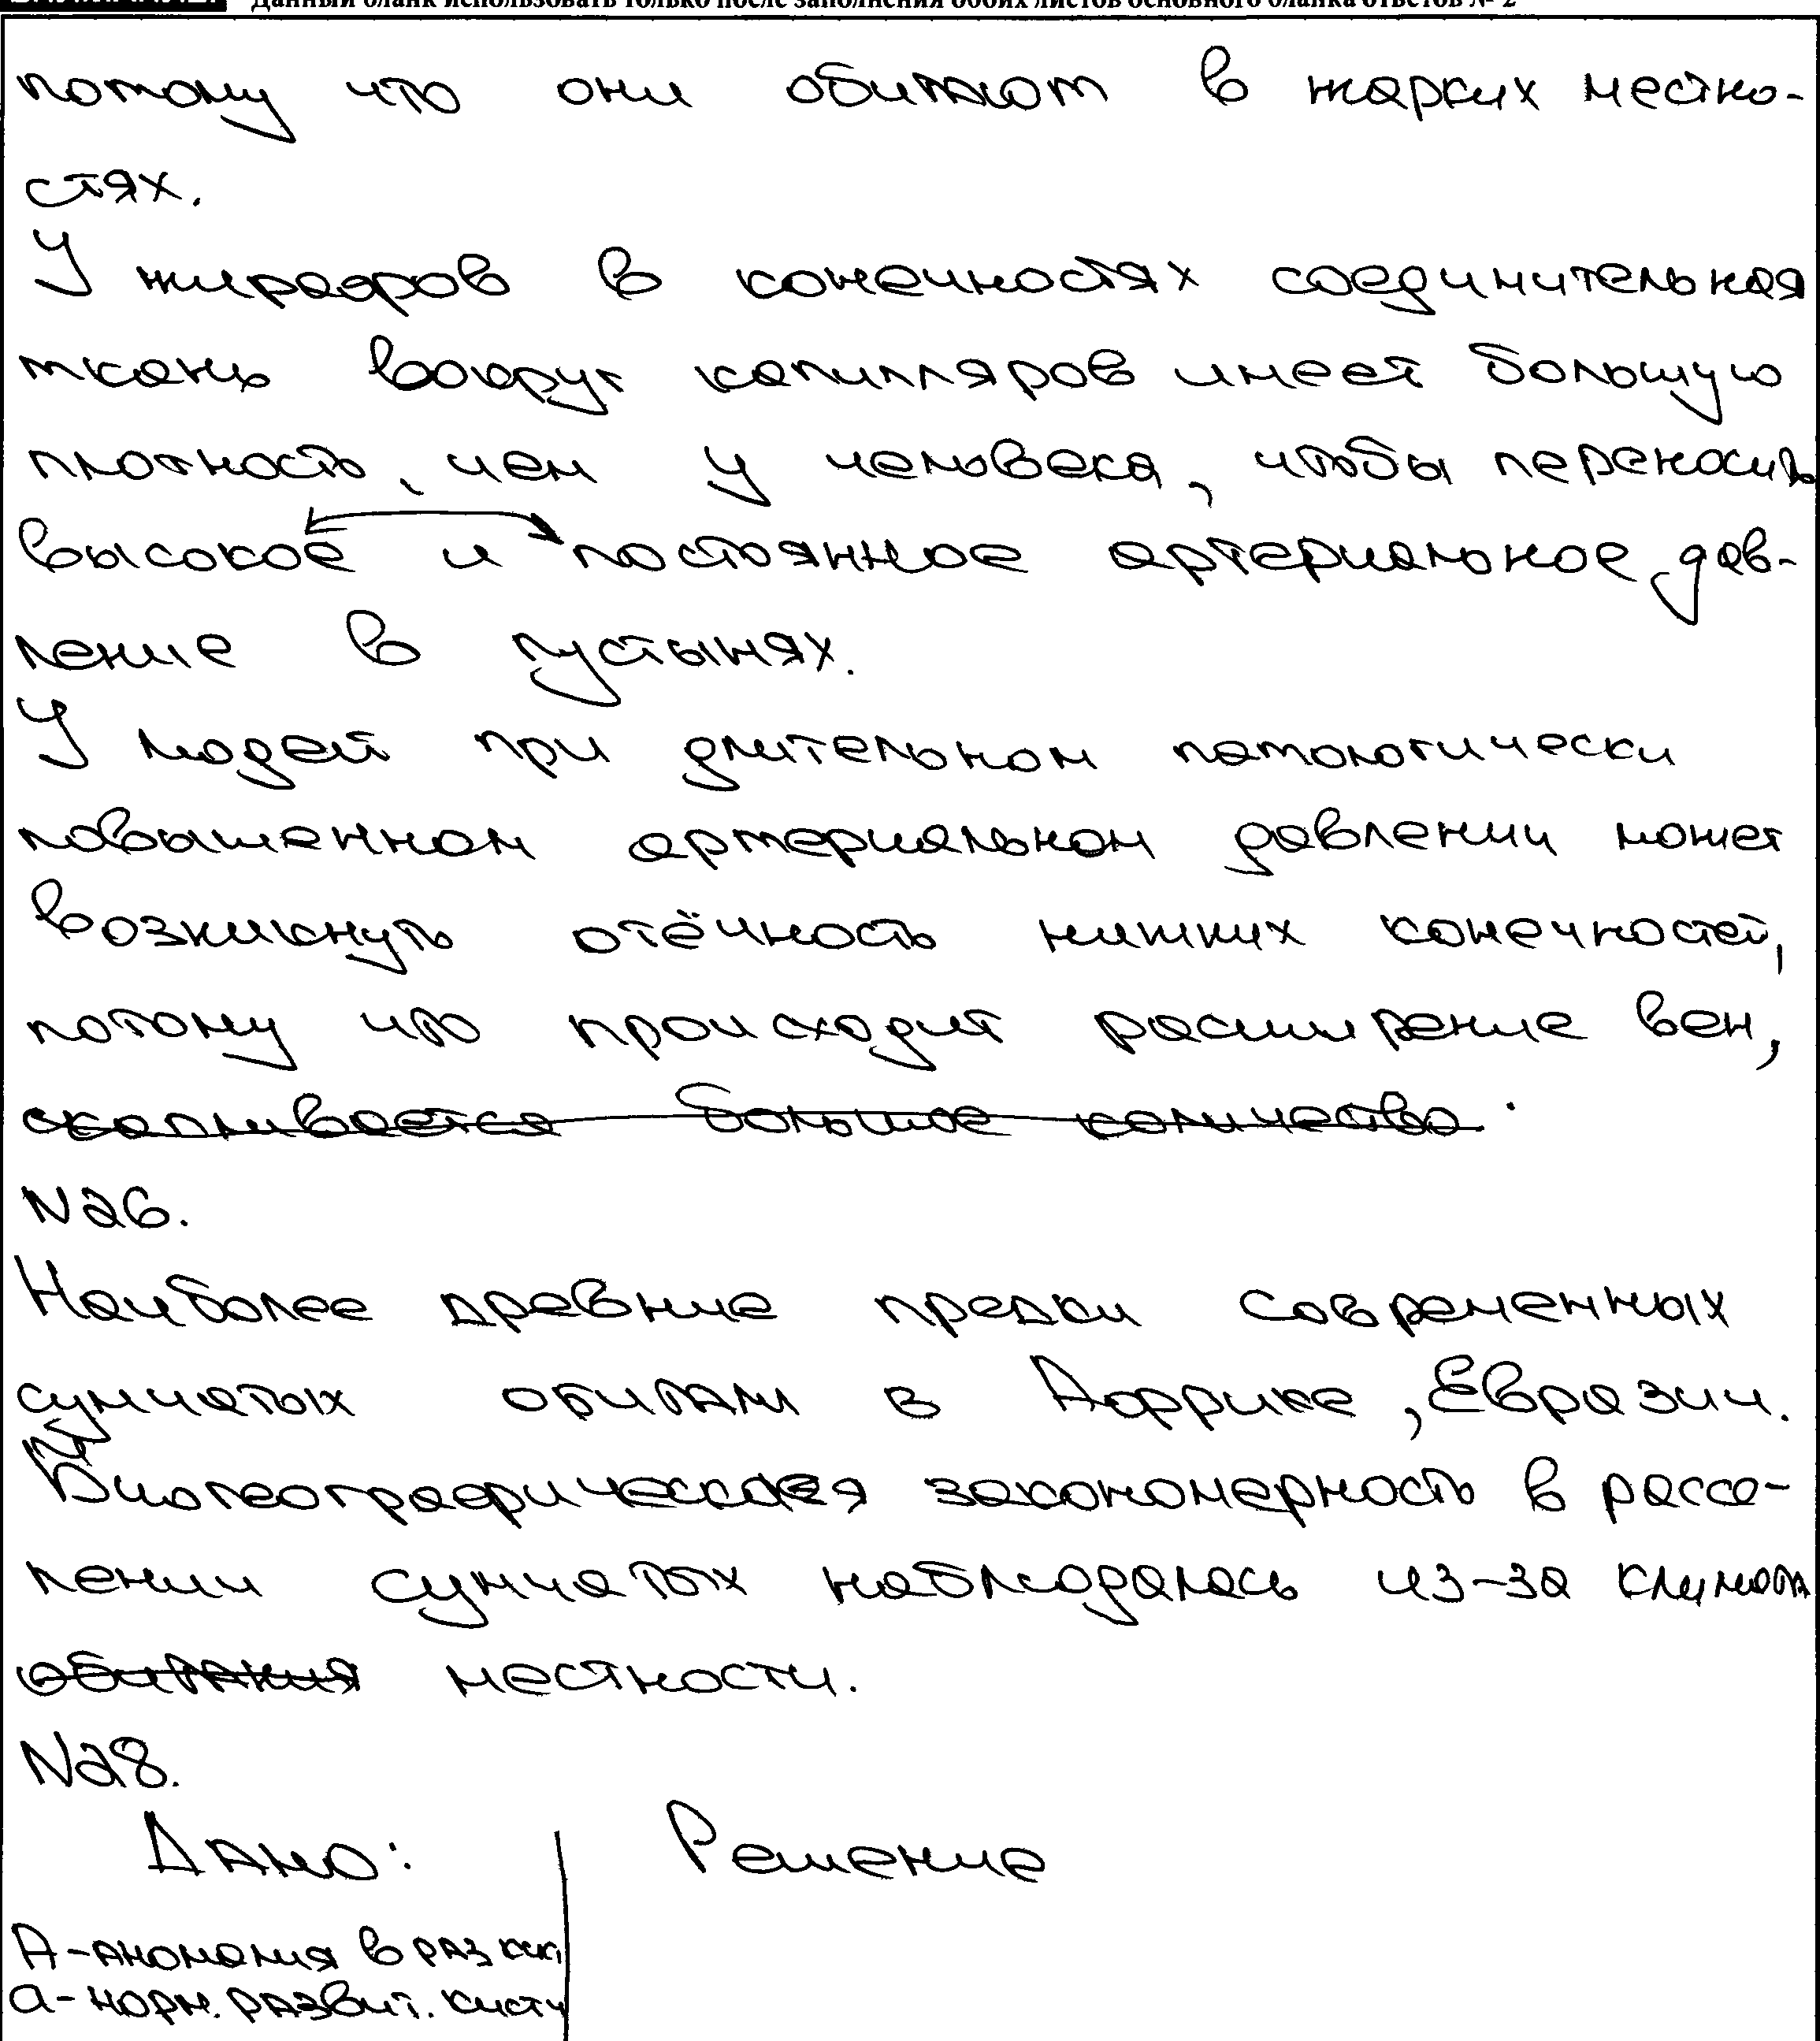 Данный бланк использовать только после заполнения обоих листов основного бланка ответов № 2
потому что они обитают в жарких местно-
стях.
У жирафов в конечностях соединительная
ткань вокруг капилляров имеет большую
плотность, чем у человека, чтобы переносить
высокое и постоянное артериальное дав-
ление в пустынях.
У людей при длительном патологически
повышенном артериальном давлении может
возникнуть отёчность нижних конечностей,
потому что происходит расширение вен,
скапливается большое количество.
N26.
Наиболее древние предки современных
сумчатых обитали в Африке, Евразии.
Биогеографическая закономерность в рассе-
лении сумчатых наблюдалась из-за климата
обитания местности.
N28.
Дано: Решение
А-аномалия в раз кис
а-норм. развит. кисти